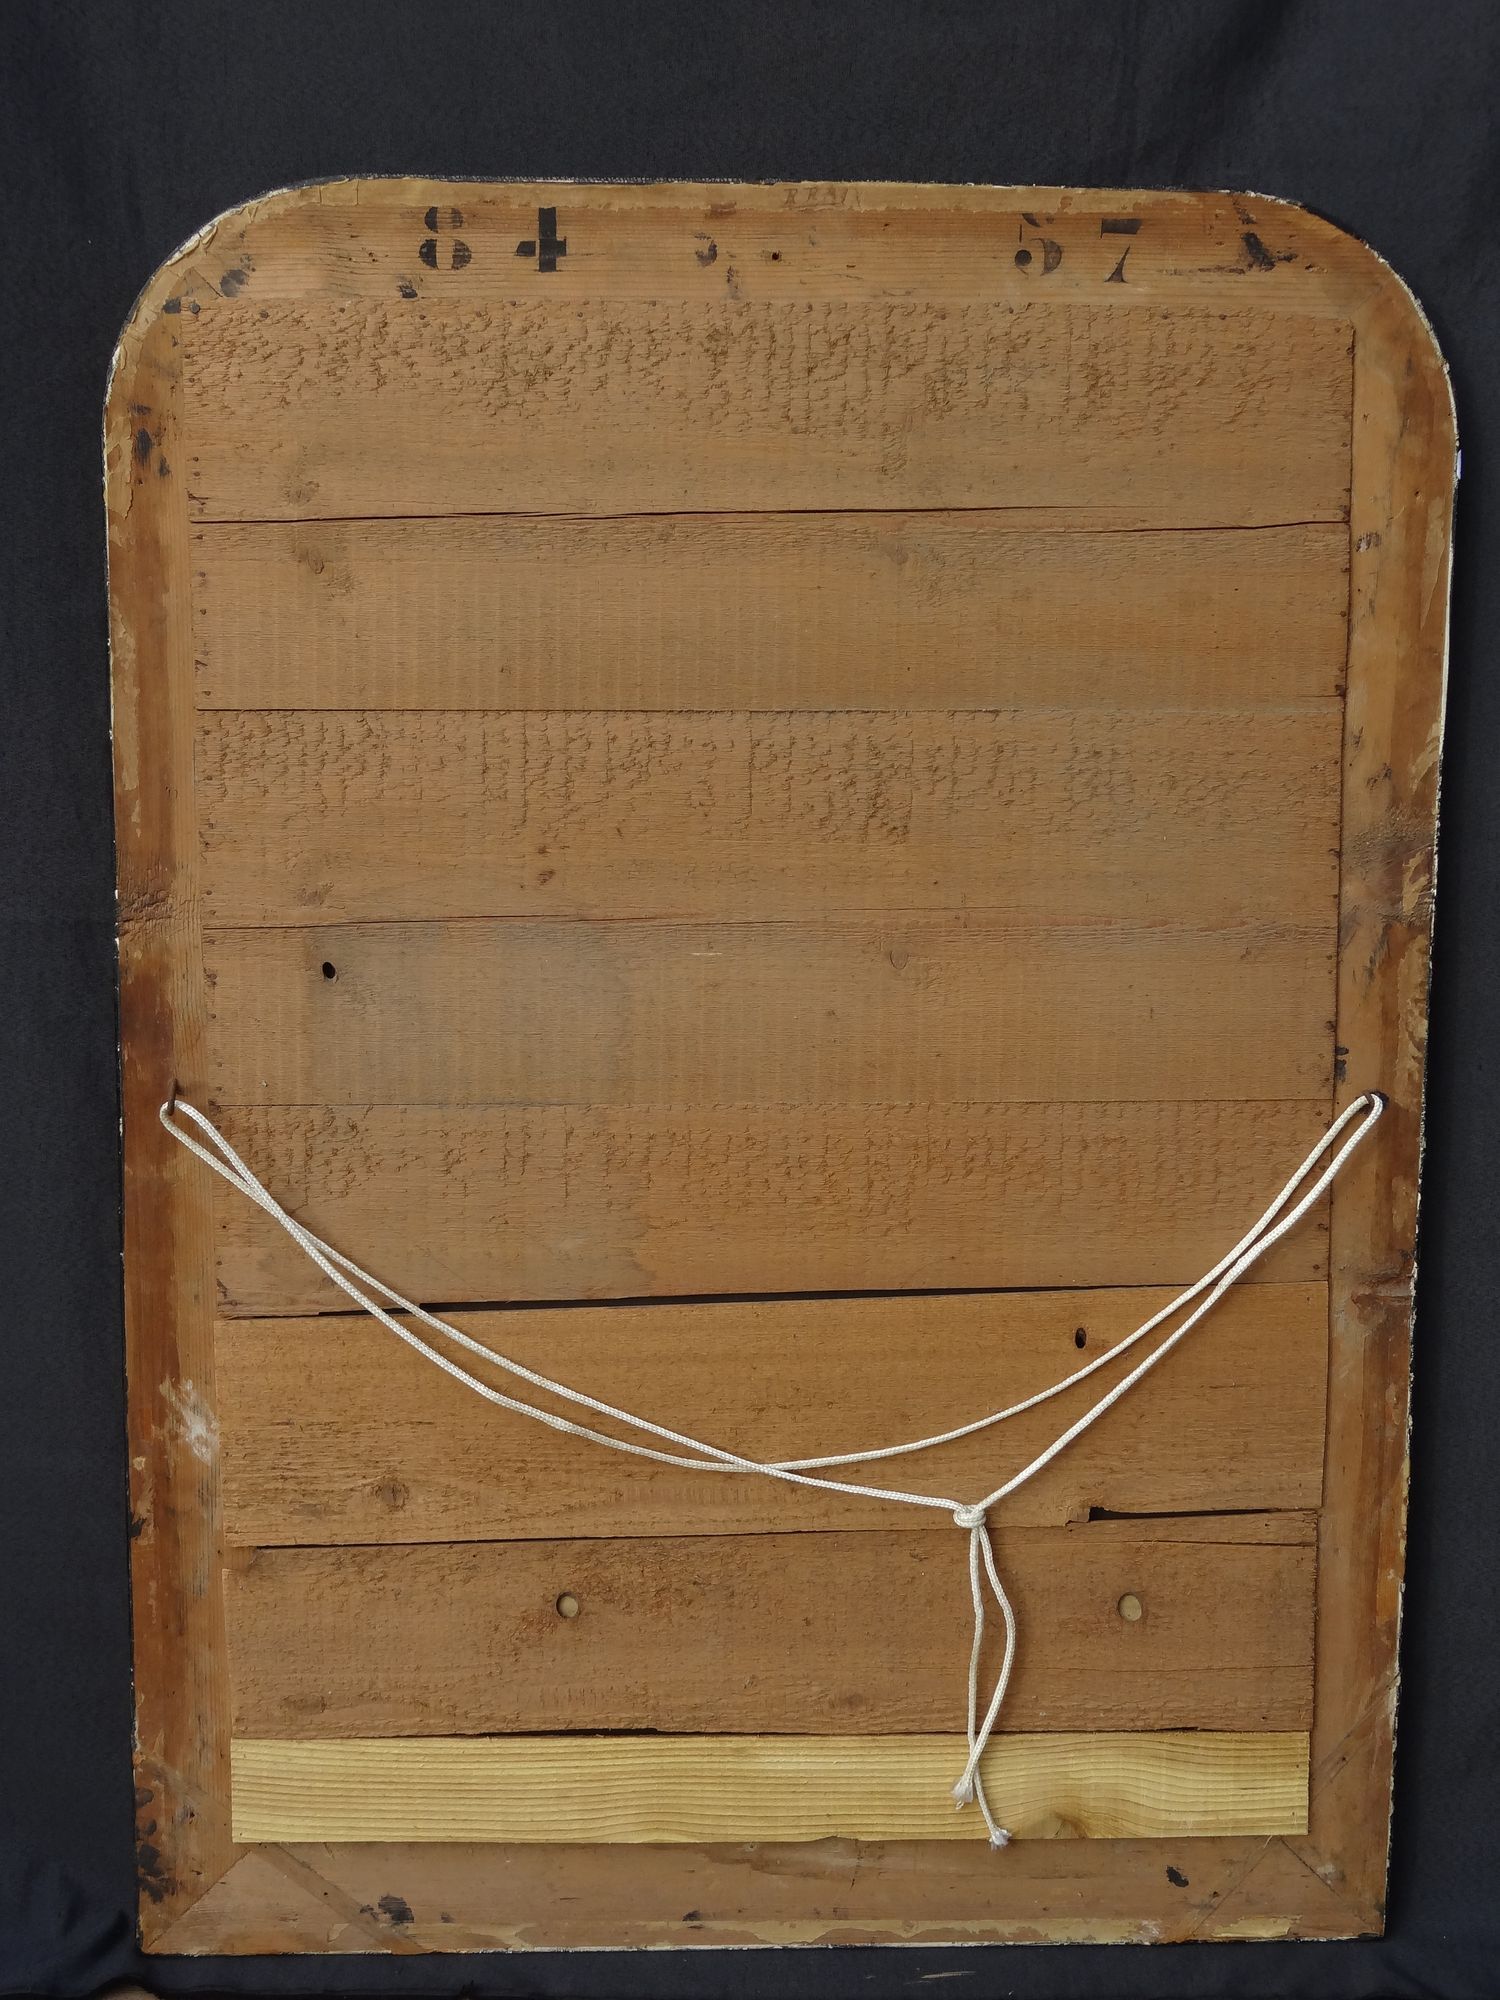 84 57